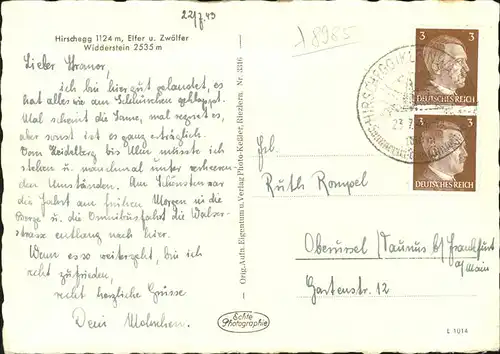 22/7.43
18985
Hirschegg 1124 m, Elfer u. Zwölfer
Widderstein 2535 m
Lieber
ich bin hier gut gelandet, es
hat alles wie am Schnürchen geklappt.
Mal scheint die Sonne, mal regnet es,
aber sonst ist es ganz erträglich.
Von Heidelberg bis Ulm musste ich
stehen u. manchmal unter
den Umständen. Am Schönsten war
die Fahrt am frühen Morgen in die
Berge u. die Omnibusfahrt die Walser-
strasse entlang nach hier.
Wenn es so weitergeht, bin ich
zufrieden,
recht herzliche Grüsse
Dein
Orig.-Aufn. Eigentum u. Verlag Photo-Keßler, Riezlern. Nr. 3316
Echte
Photographie
3 3
DEUTSCHES REICH
3 3
DEUTSCHES REICH
HIRSCHEGG
23.7.
Frl.
Ruth Rompel
Oberursel (Taunus) b/Frankfurt
a/Main
Gartenstr. 12
L 1014